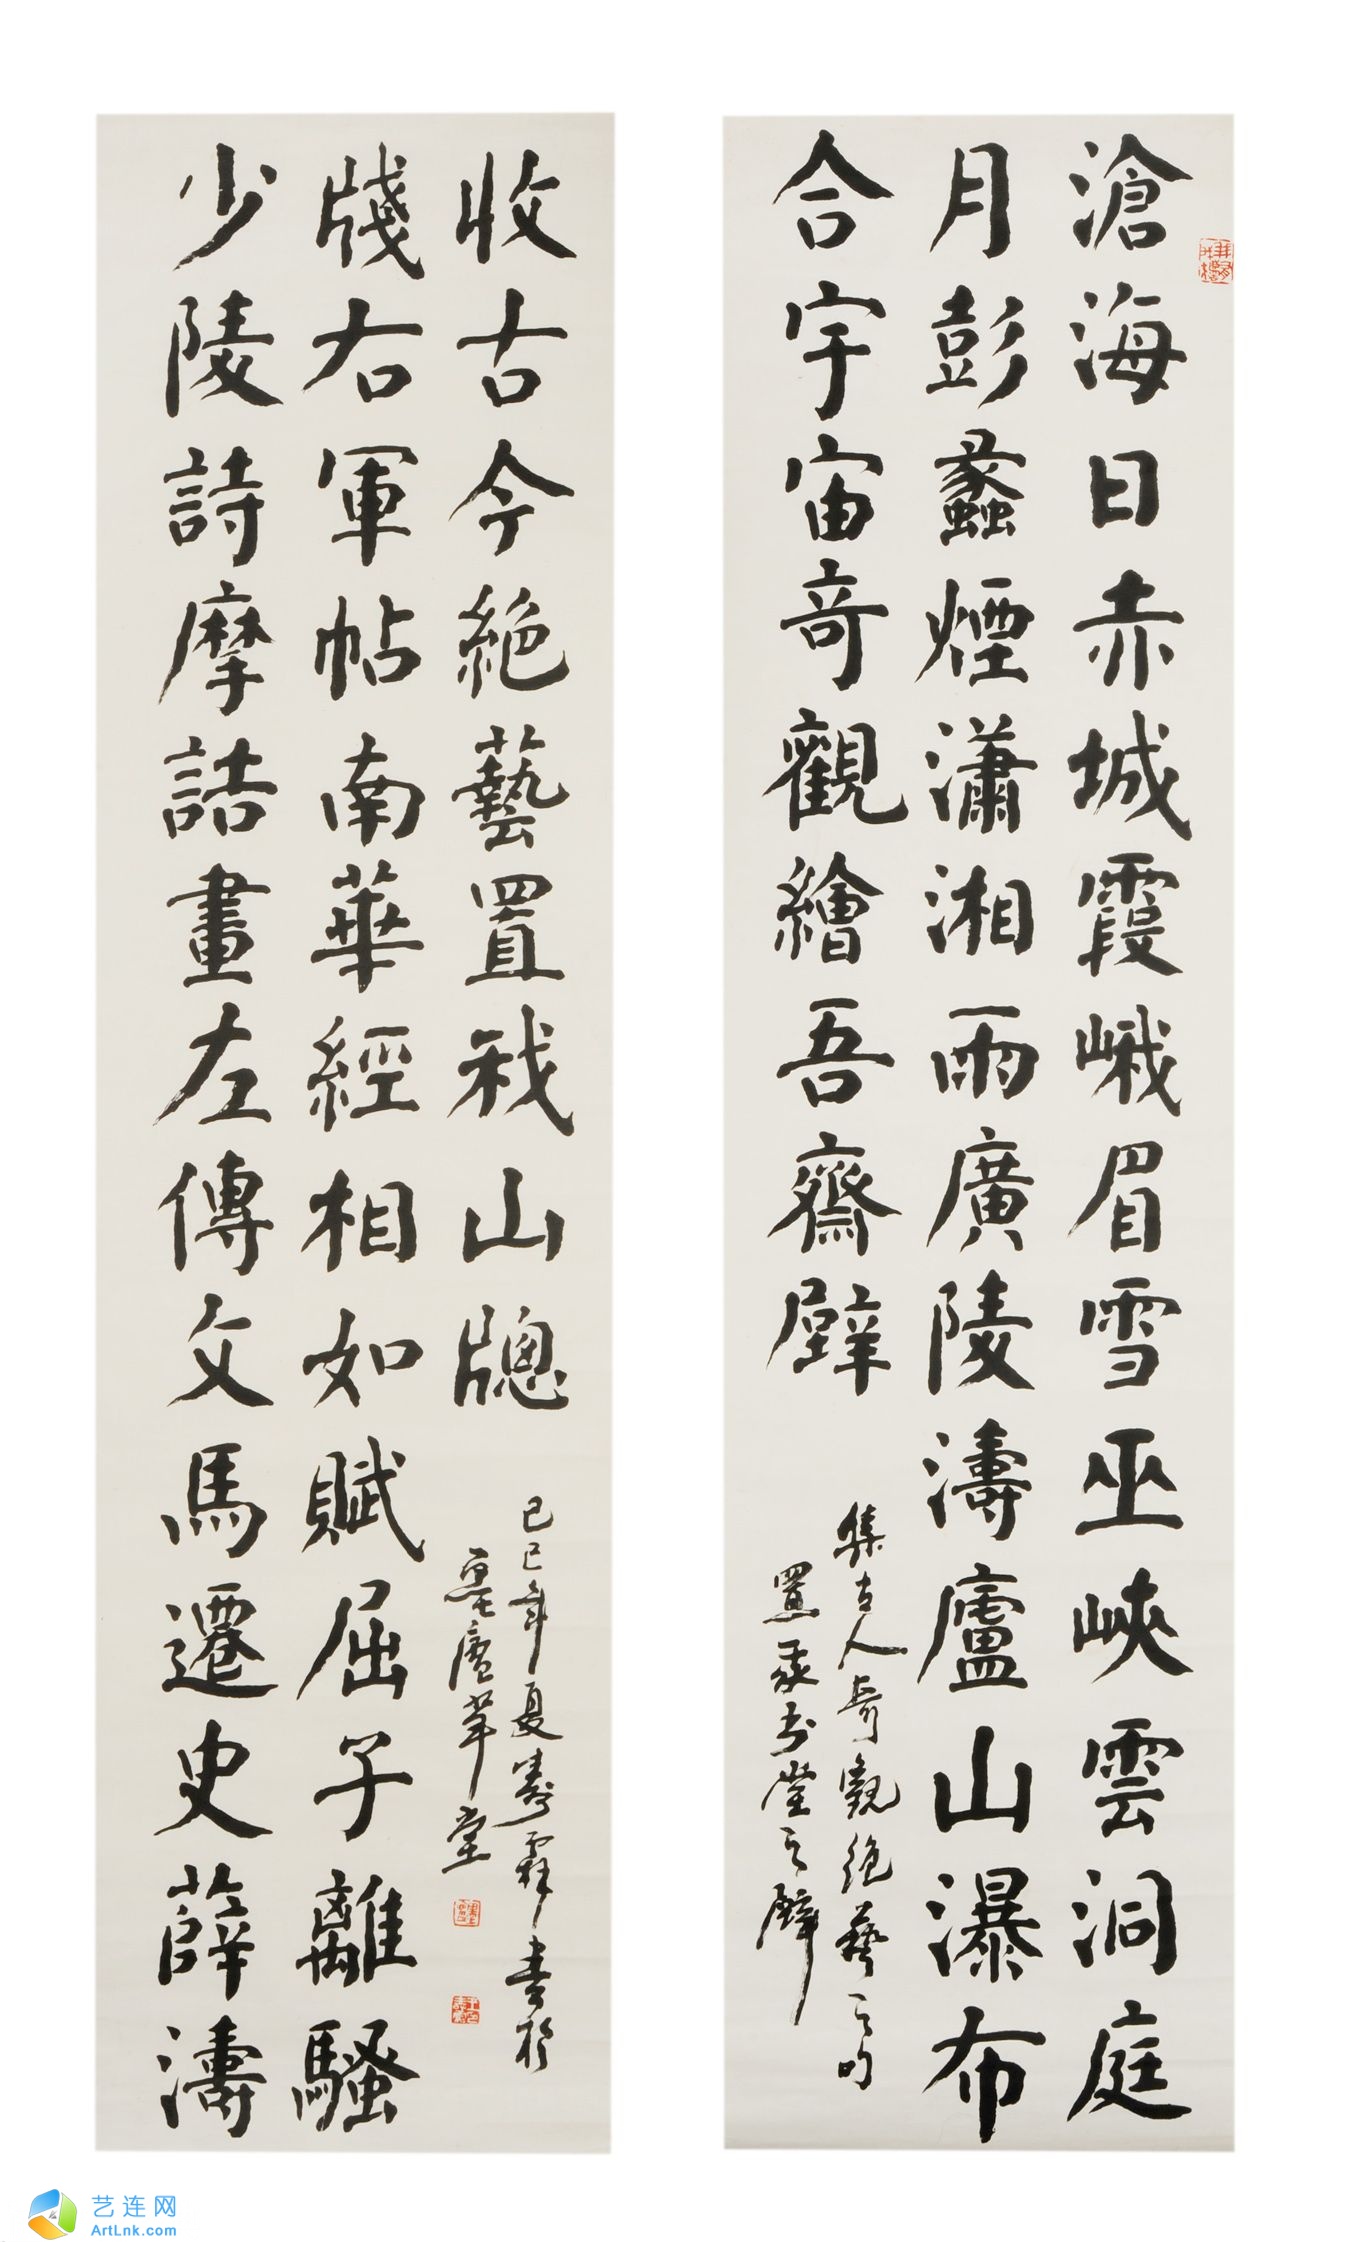 滄海日赤城霞峨眉雪巫峽雲洞庭
月彭蠡煙瀟湘雨廣陵濤廬山瀑布
合宇宙竒觀繪吾齋壁
集古人奇觀絕藝之句
置書堂之壁
少陵詩摩詰畫左傳文馬遷史薛濤
牋右軍帖南華經相如賦屈子離騷
收古今絕藝置我山牕
己巳年夏壽書於
廬草堂
艺连网
ArtLnk.com